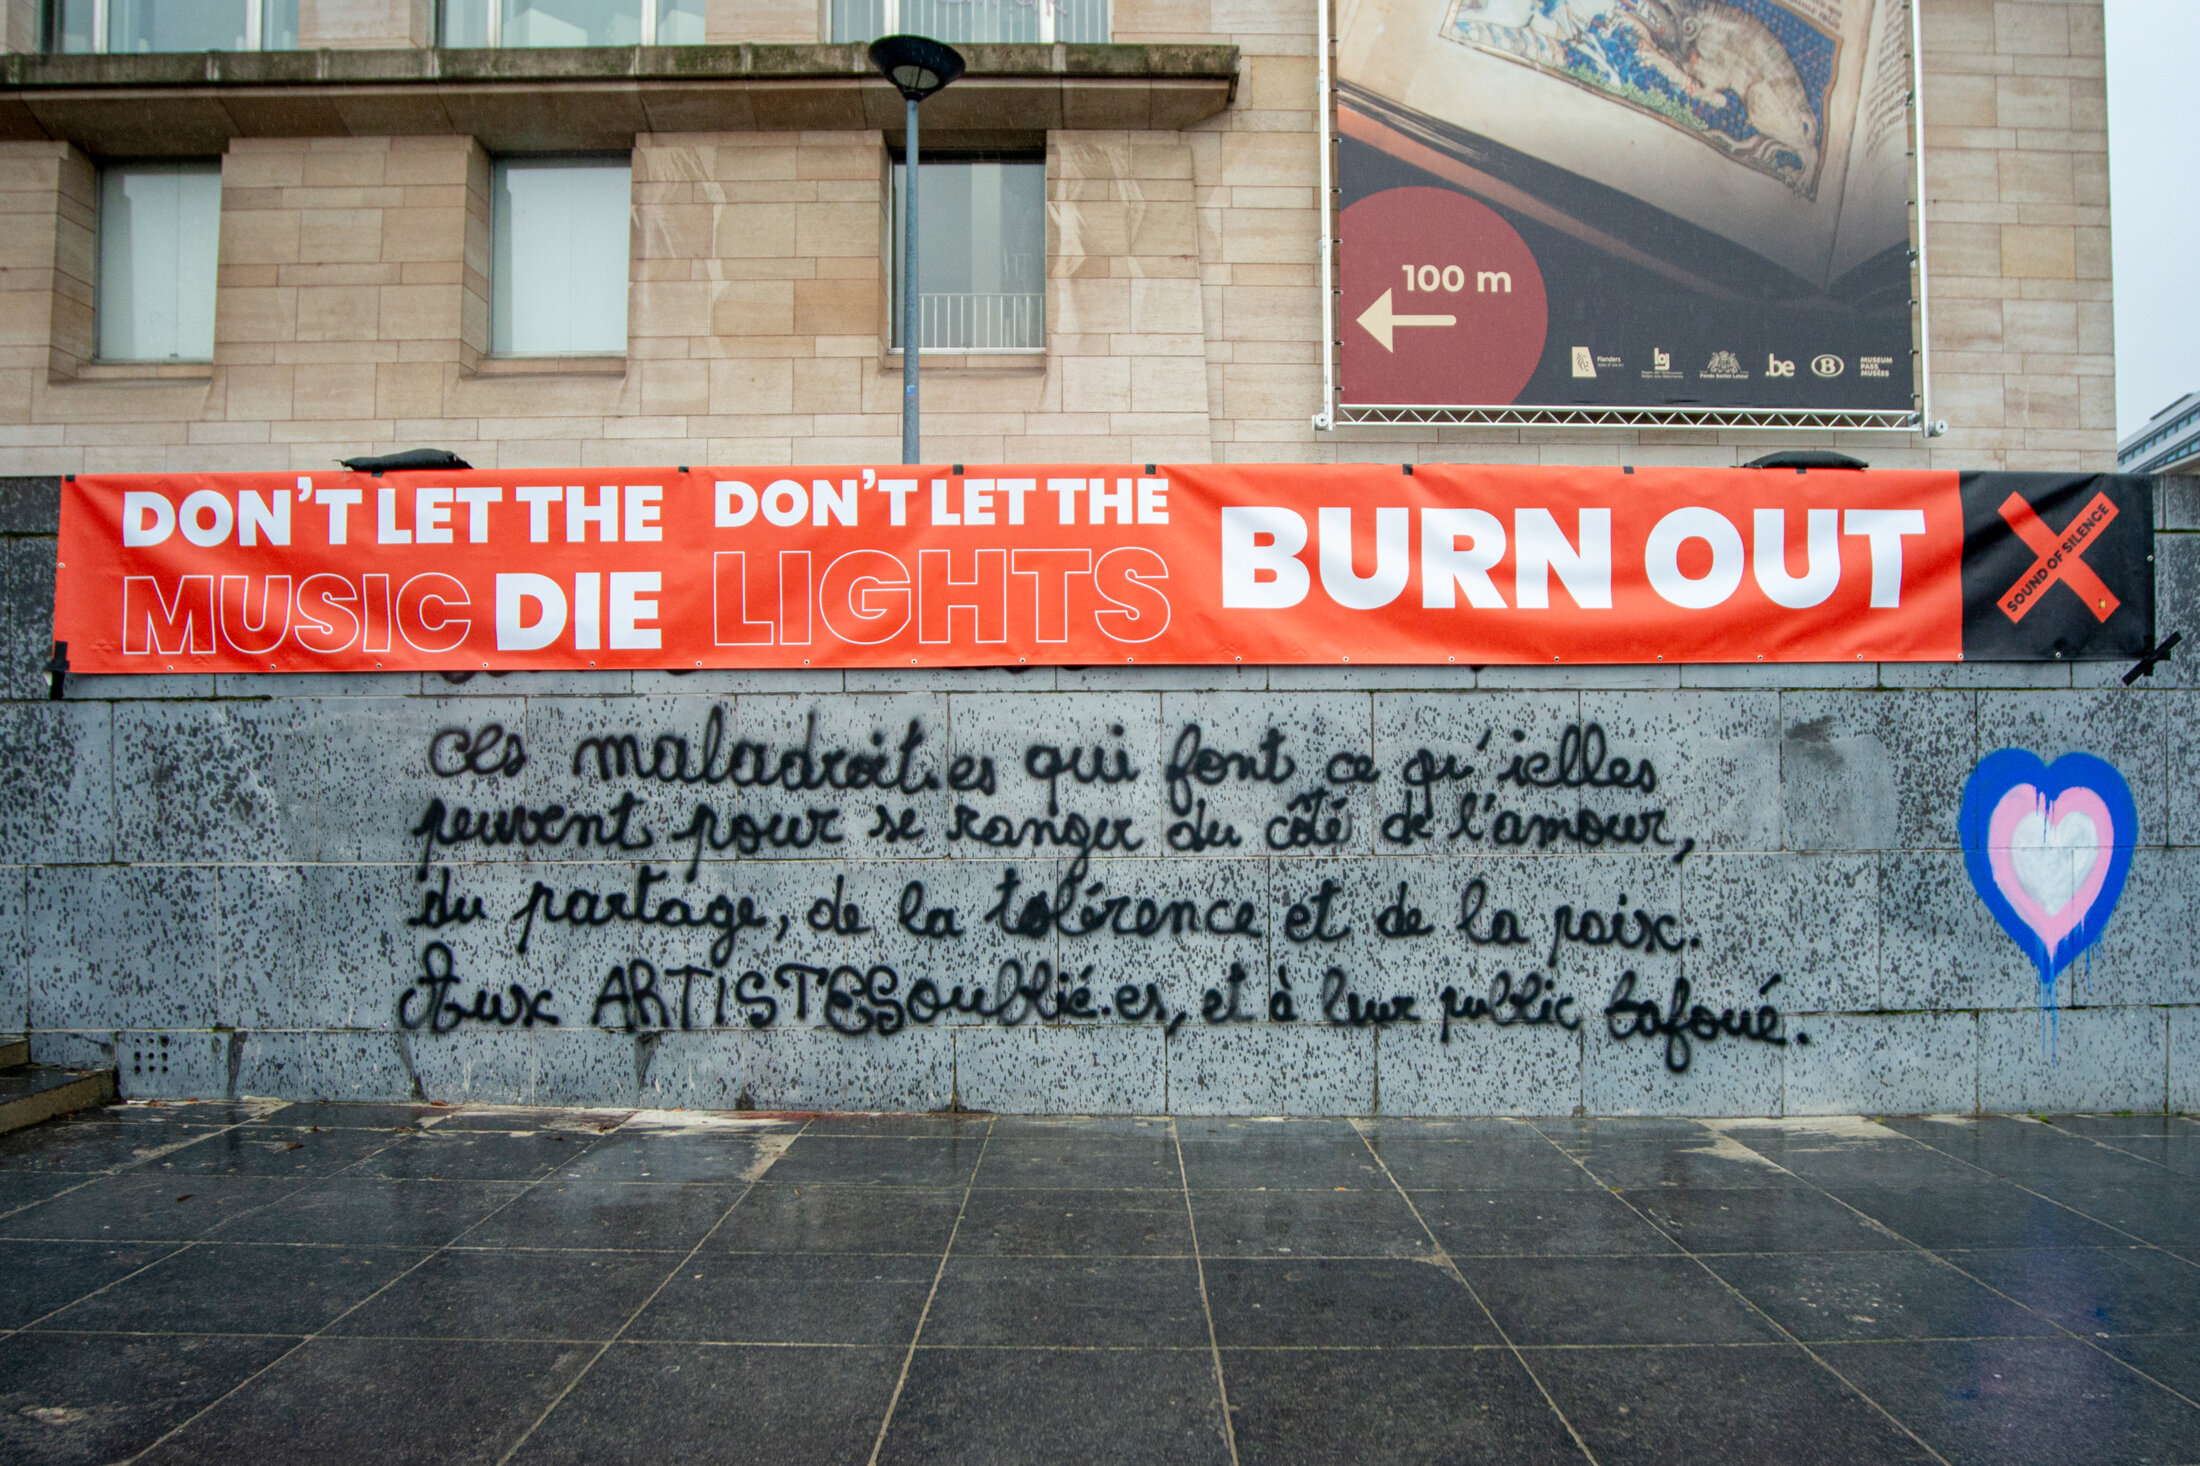 100 m
Flanders
.be
B
MUSEUM
PASS
MUSÉES
DON'T LET THE
MUSIC DIE
DON'T LET THE
LIGHTS
BURN OUT
SOUND OF SILENCE
Ces maladroit.es qui font ce qu'ielles
peuvent pour se ranger du côté de l'amour,
du partage, de la tolérence et de la paix.
Aux ARTISTES oublié.es, et à leur public bafoué.